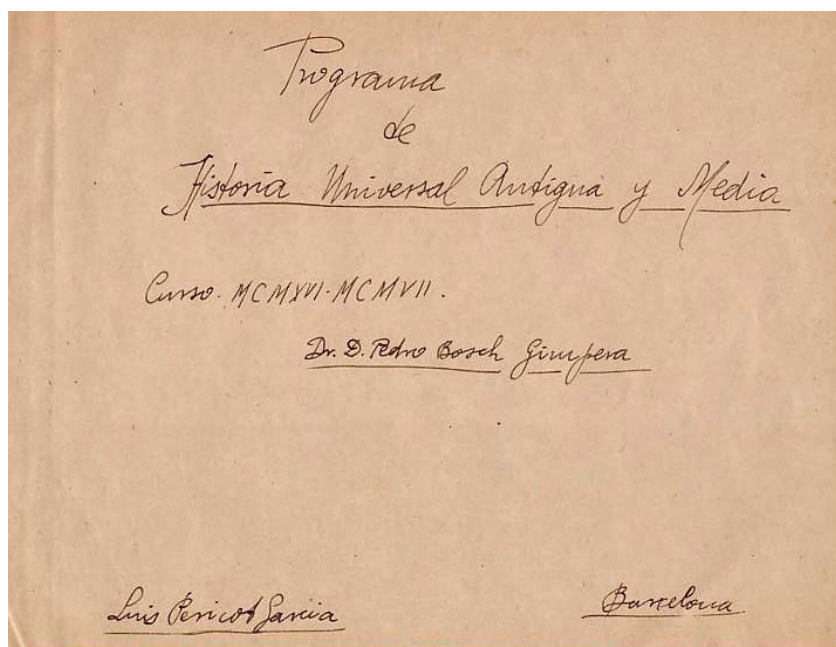 Programa
de
Historia Universal Antigua y Media
Curso. MCMXVI-MCMVII.
Dr. D. Pedro Bosch Gimpera
Luis Pericot Garcia
Barcelona